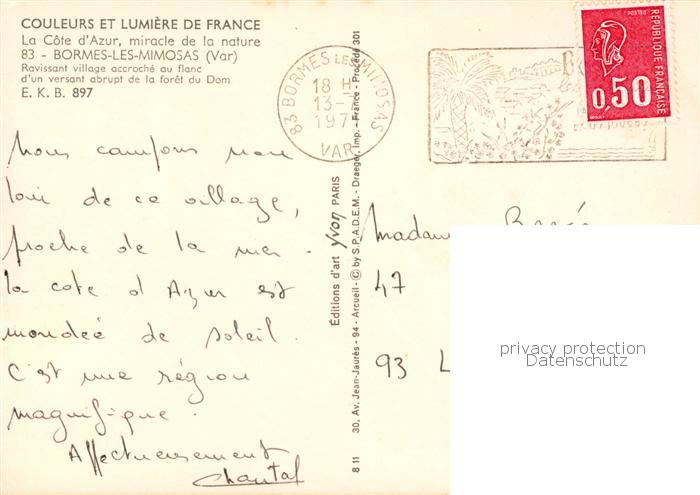 COULEURS ET LUMIÈRE DE FRANCE
La Côte d'Azur, miracle de la nature
83 - BORMES-LES-MIMOSAS (Var)
Ravissant village accroché au flanc
d'un versant abrupt de la forêt du Dom
E. K. B. 897
Nous campons non
loin de ce village,
proche de la mer.
la cote d'Azur est
inondée de soleil.
C'est une région
magnifique.
Affectueusement
Chantal
83 BORMES LES MIMOSAS
18 H
13-
197
VAR
Éditions d'art yvon PARIS
30, Av. Jean-Jaurès - 94 - Arcueil - © by S.P.A.D.E.M. - Draeger, Imp. - France - Procédé 301
8 11
POSTES
RÉPUBLIQUE FRANÇAISE
0,50
Madam
47
93 L
privacy protection
Datenschutz